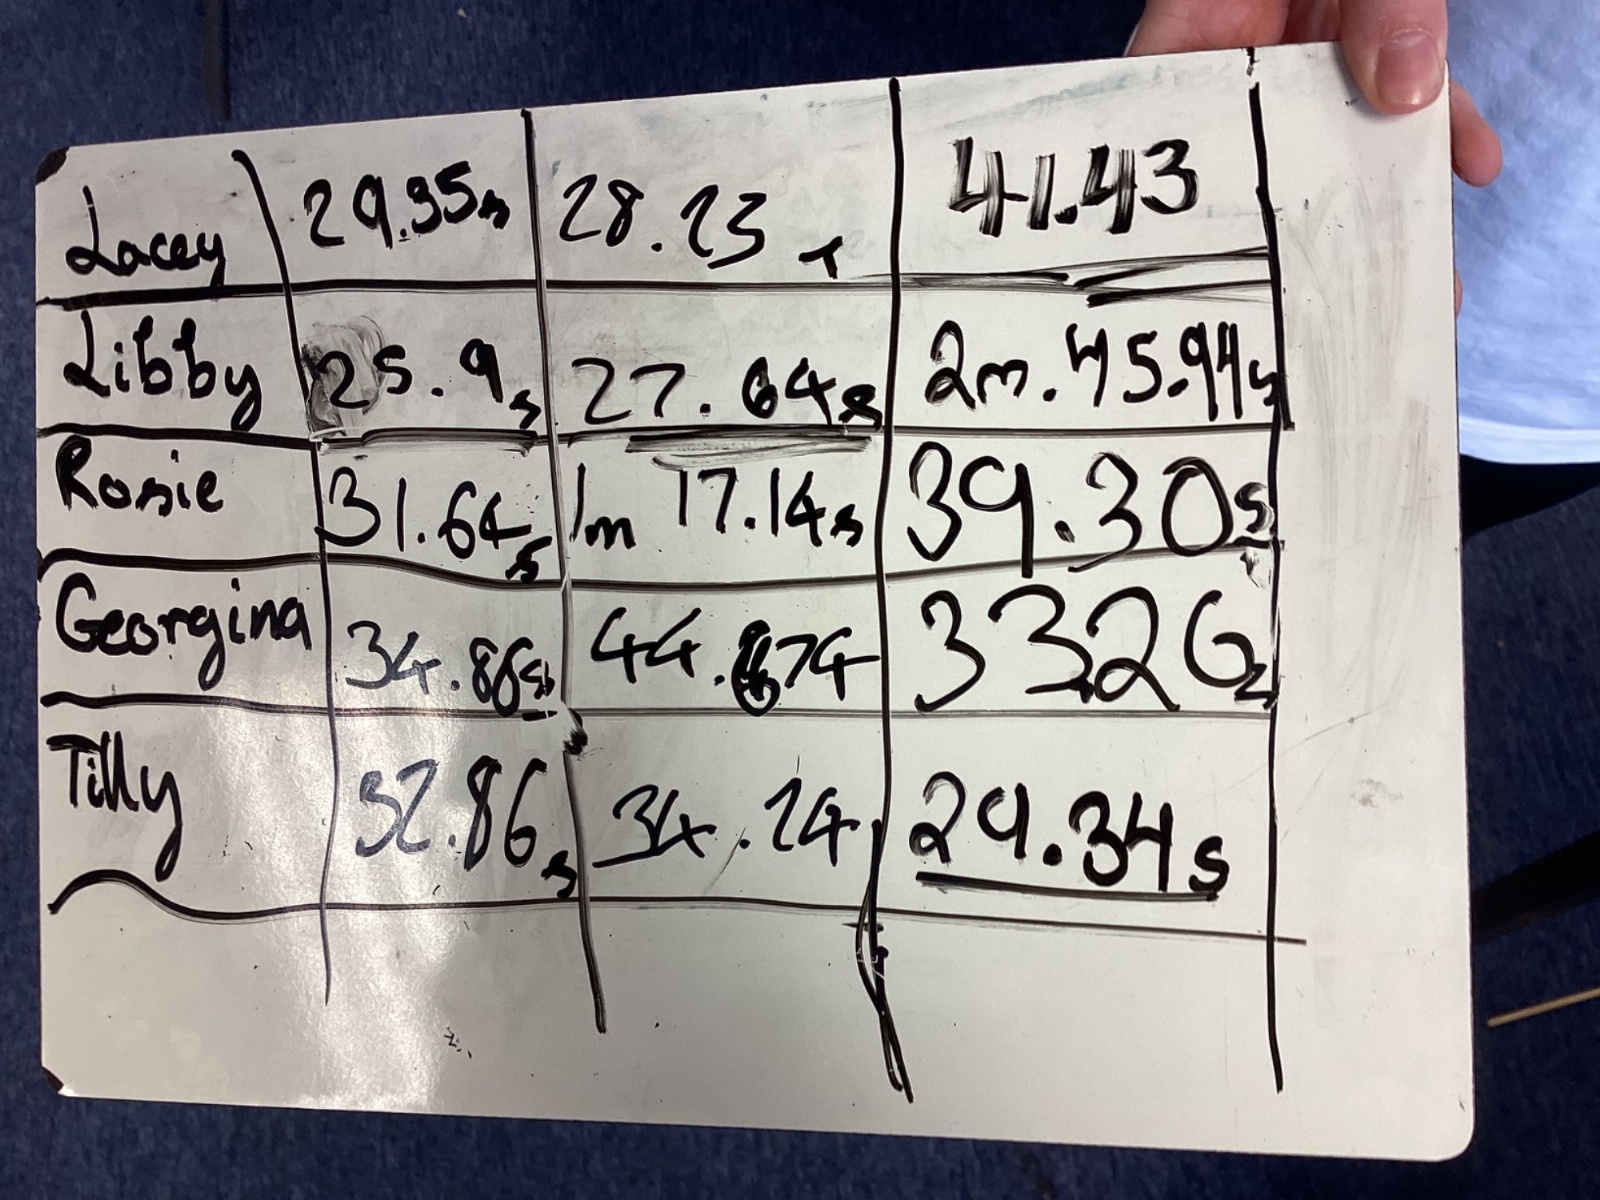 Lacey 29.35s 28.23s 41.43
Libby 25.9s 27.64s 2m.45.94s
Rosie 31.64s 1m 17.14s 39.30s
Georgina 34.86s 44.674 33.26s
Tilly 32.86s 34.24 29.34s